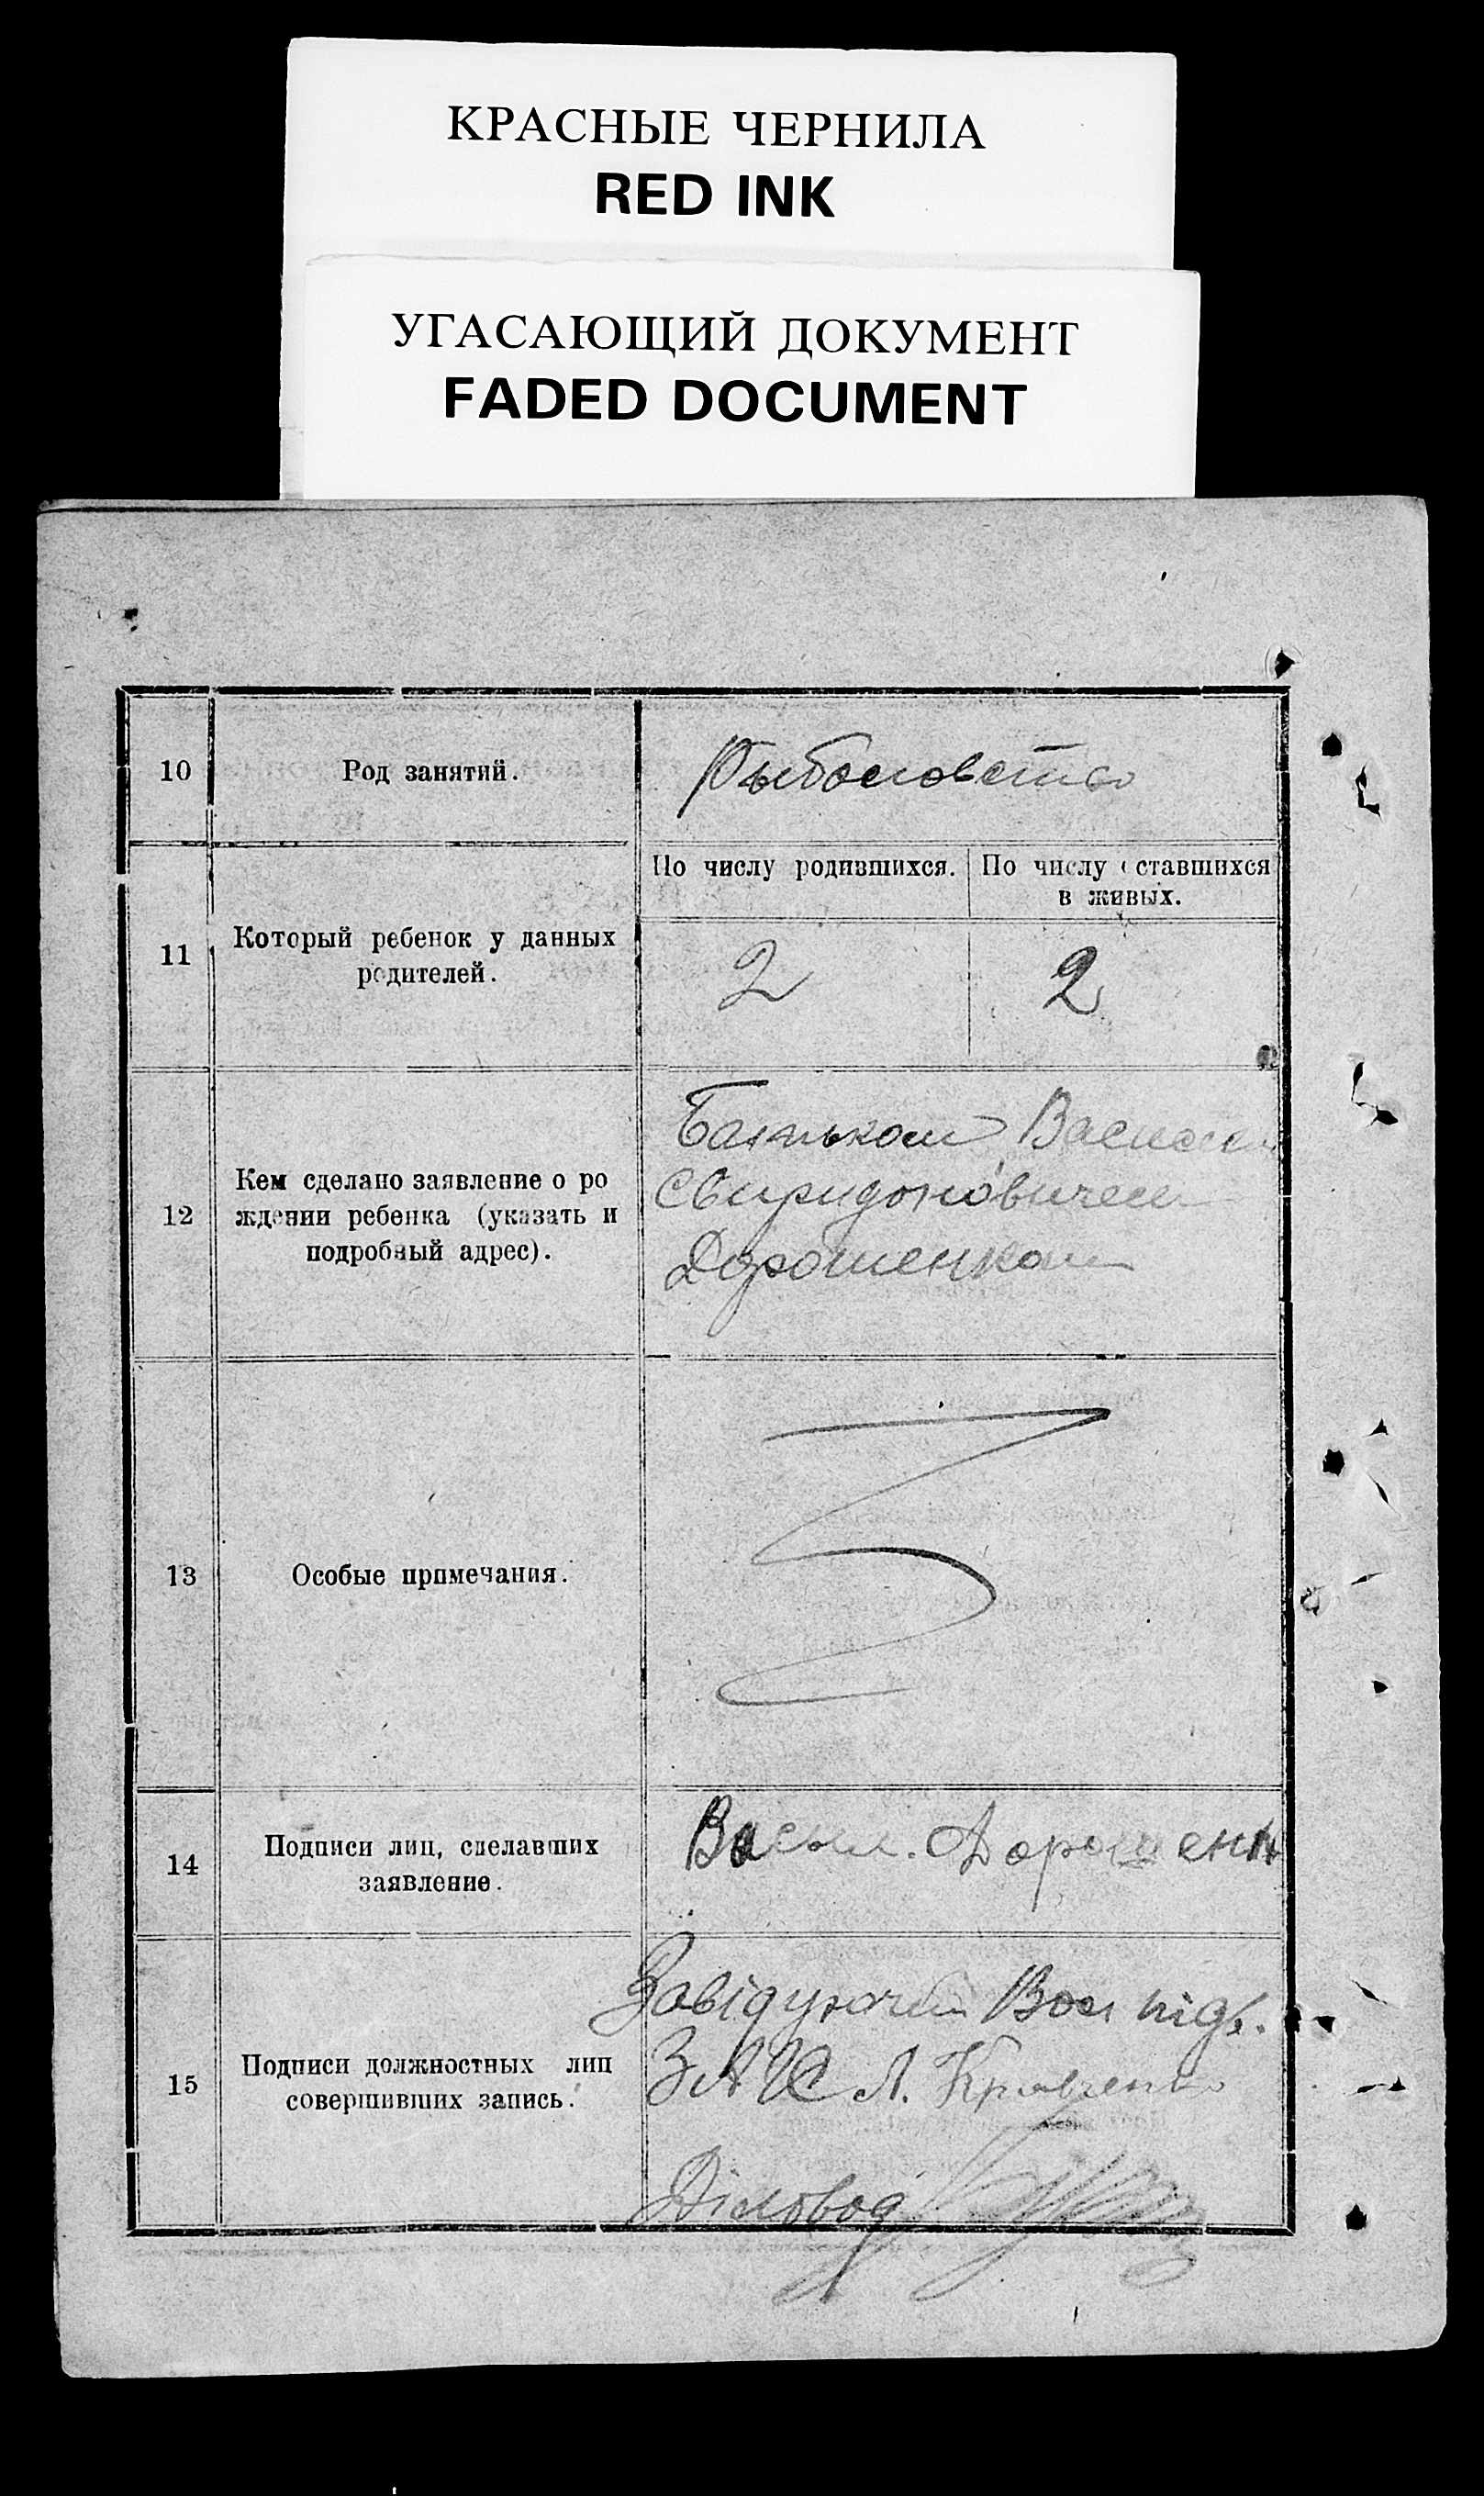 КРАСНЫЕ ЧЕРНИЛА
RED INK
УГАСАЮЩИЙ ДОКУМЕНТ
FADED DOCUMENT
10
Род занятий.
Рыболовство
11
Который ребенок у данных
родителей.
По числу родившихся.
По числу оставшихся
в живых.
2
2
12
Кем сделано заявление о ро
ждении ребенка (указать и
подробный адрес).
Батьком Василем
Свиридоновичем
Дорошенком
13
Особые примечания.
14
Подписи лиц, сделавших
заявление.
Васыл. Дорошенк
15
Подписи должностных лиц
совершивших запись.
Завідуючий Вол підв.
ЗАГС Л. Кравченко
Діловод